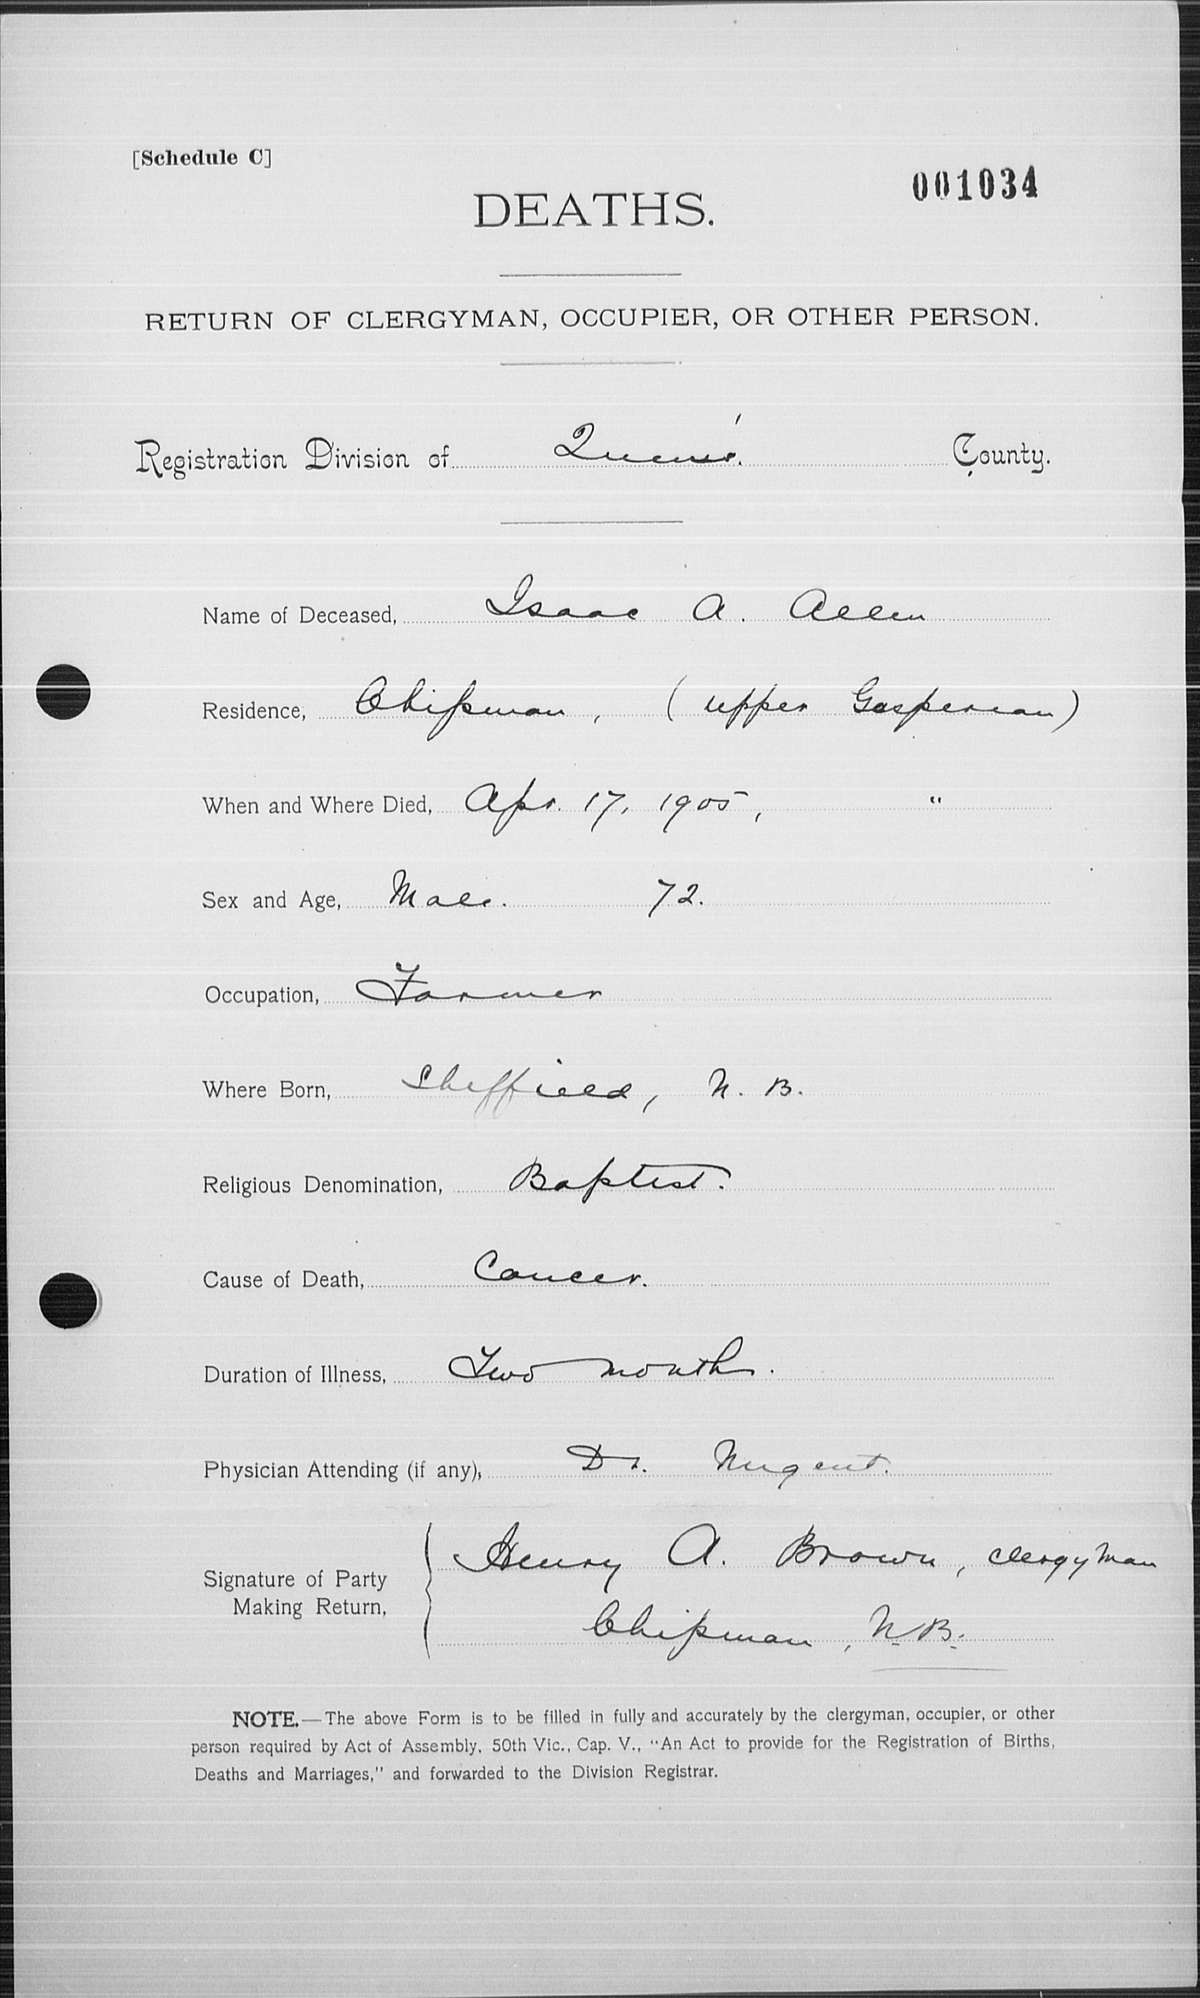 [Schedule C]
001034
DEATHS.
RETURN OF CLERGYMAN, OCCUPIER, OR OTHER PERSON.
Registration Division of Queens'. County.
Name of Deceased, Isaac A. Allen
Residence, Chipman, (upper Gaspereau)
When and Where Died, Apr. 17, 1905, "
Sex and Age, Male. 72.
Occupation, Farmer
Where Born, Sheffield, N. B.
Religious Denomination, Baptist.
Cause of Death, Cancer.
Duration of Illness, Two months.
Physician Attending (if any), Dr. Nugent.
Signature of Party Making Return, Henry A. Brown, clergyman
Chipman, N.B.
NOTE.—The above Form is to be filled in fully and accurately by the clergyman, occupier, or other
person required by Act of Assembly, 50th Vic., Cap. V., "An Act to provide for the Registration of Births,
Deaths and Marriages," and forwarded to the Division Registrar.